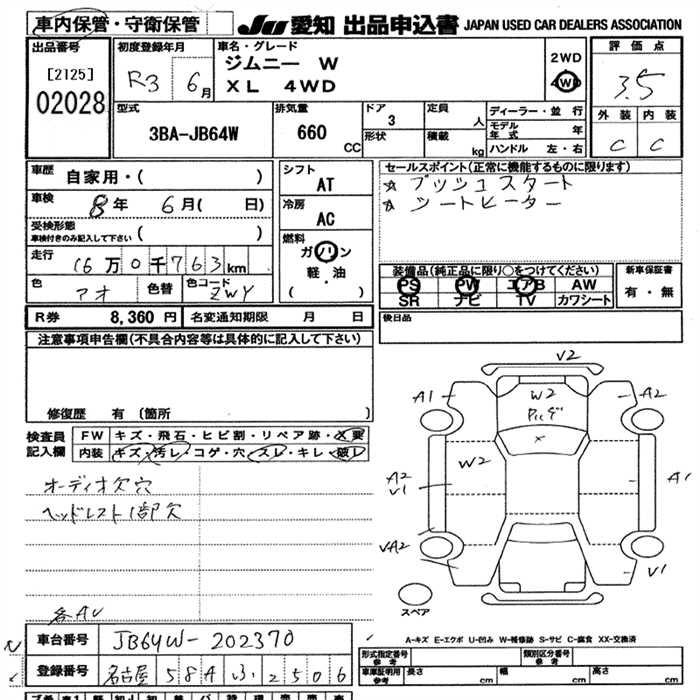 車内保管・守衛保管
JU 愛知 出品申込書 JAPAN USED CAR DEALERS ASSOCIATION
出品番号
[2125]
02028
初度登録年月
R3 6月
車名・グレード
ジムニー W
XL 4WD
2WD
4WD
評価点
3.5
外装 内装
C C
型式
3BA-JB64W
排気量
660 CC
ドア
3
形状
定員 人
積載 kg
ディーラー・並行
モデル年式 年
ハンドル 左・右
車歴 自家用・( )
車検 8年 6月( 日)
受検形態
車検付きのみ記入して下さい ( )
走行 16万0千763km
色 アオ 色替 色コード ZWY
シフト
AT
冷房
AC
燃料
ガソリン
・
軽油
( )
セールスポイント(正常に機能するものに限ります)
☆ プッシュスタート
☆ シートヒーター
装備品(純正品に限り○をつけてください)
PS PW エアB AW
SR ナビ TV カワシート
新車保証書
有・無
R券 8,360円 名変通知期限 月 日
後日品
注意事項申告欄(不具合内容等は具体的に記入して下さい)
修復歴 有(箇所 )
検査員記入欄
FW キズ・飛石・ヒビ割・リペア跡・X要
内装 キズ・汚レ・コゲ・穴・スレ・キレ・破レ
オーディオ欠穴
ヘッドレスト1部欠
各AU
V2
A1
W2
A2
W2
A2
V1
A1
VA2
V1
スペア
A-キズ E-エクボ U-凹み W-補修跡 S-サビ C-腐食 XX-交換済
車台番号 JB64W-202370
登録番号 名古屋 58A ふ 2506
形式指定番号
参考
類別区分番号
参考
車庫証明用
参考
長さ cm 幅 cm 高さ cm